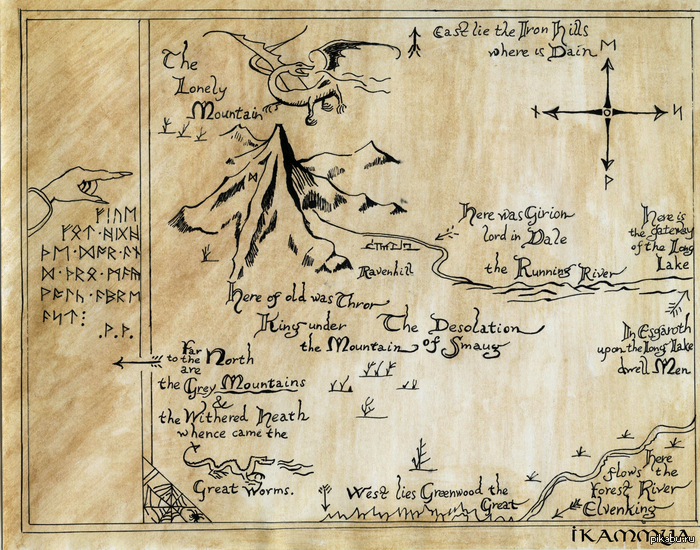 The
Lonely
Mountain
East lie the Iron Hills
where is Dain
Here was Girion
lord in Dale
Here is
the gateway
of the Long
Lake
Ravenhill
the Running River
Here of old was Thror
King under
the Mountain
The Desolation
of Smaug
In Esgaroth
upon the Long Lake
dwell Men
Far
to the North
are
the Grey Mountains
&
the Withered Heath
whence came the
Great Worms.
West lies Greenwood the
Great
Here
flows the
Forest River
Elvenking
pikabu.ru